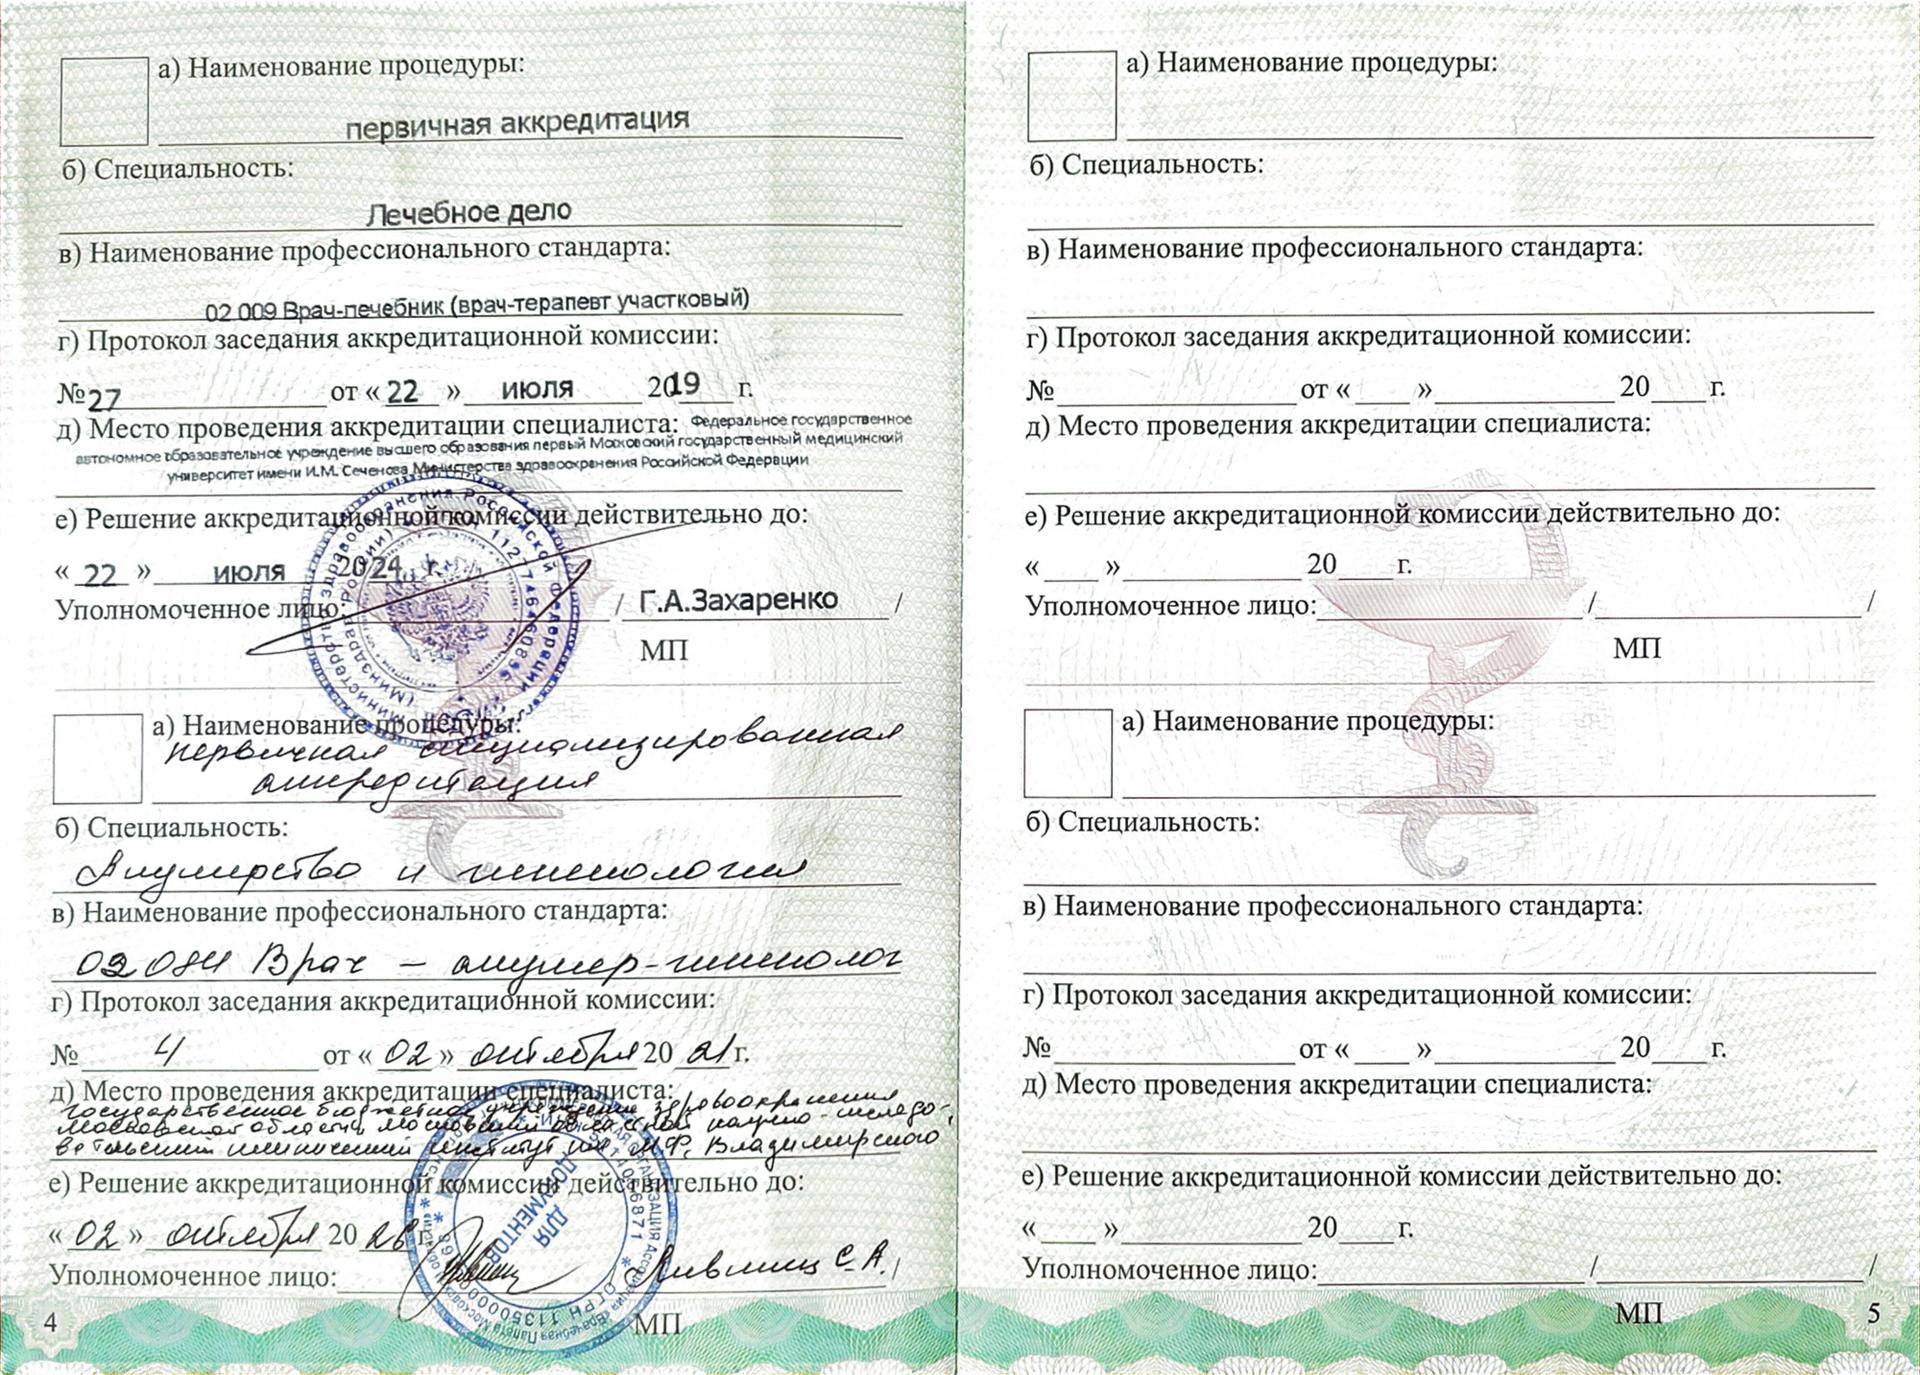 а) Наименование процедуры:
первичная аккредитация
б) Специальность:
Лечебное дело
в) Наименование профессионального стандарта:
02 009 Врач-лечебник (врач-терапевт участковый)
г) Протокол заседания аккредитационной комиссии:
№27 от «22» июля 2019 г.
д) Место проведения аккредитации специалиста: Федеральное государственное
автономное образовательное учреждение высшего образования первый Московский государственный медицинский
университет имени И.М. Сеченова Министерства здравоохранения Российской Федерации
е) Решение аккредитационной комиссии действительно до:
«22» июля 2024 г.
Уполномоченное лицо: / Г.А.Захаренко /
МП
а) Наименование процедуры:
первичная специализированная
аккредитация
б) Специальность:
Акушерство и гинекология
в) Наименование профессионального стандарта:
02 084 Врач – акушер-гинеколог
г) Протокол заседания аккредитационной комиссии:
№ 4 от «02» октября 20 21 г.
д) Место проведения аккредитации специалиста:
государственное бюджетное учреждение здравоохранения
Московской области Московский областной научно-исследо-
вательский клинический институт им. М.Ф. Владимирского
е) Решение аккредитационной комиссии действительно до:
«02» октября 20 26 г.
Уполномоченное лицо: С.А. /
МП
ДЛЯ
ДОКУМЕНТОВ
4
а) Наименование процедуры:
б) Специальность:
в) Наименование профессионального стандарта:
г) Протокол заседания аккредитационной комиссии:
№ от « » 20 г.
д) Место проведения аккредитации специалиста:
е) Решение аккредитационной комиссии действительно до:
« » 20 г.
Уполномоченное лицо: / /
МП
а) Наименование процедуры:
б) Специальность:
в) Наименование профессионального стандарта:
г) Протокол заседания аккредитационной комиссии:
№ от « » 20 г.
д) Место проведения аккредитации специалиста:
е) Решение аккредитационной комиссии действительно до:
« » 20 г.
Уполномоченное лицо: / /
МП
5